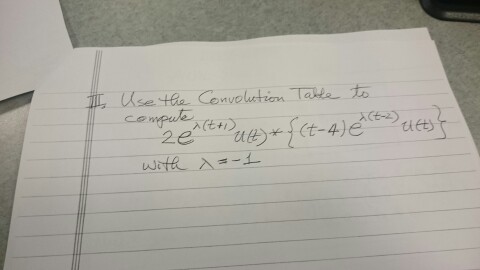 II, Use the Convolution Table to
compute
2e^λ(t+1) u(t) * {(t-4)e^λ(t-2) u(t)}
with λ = -1